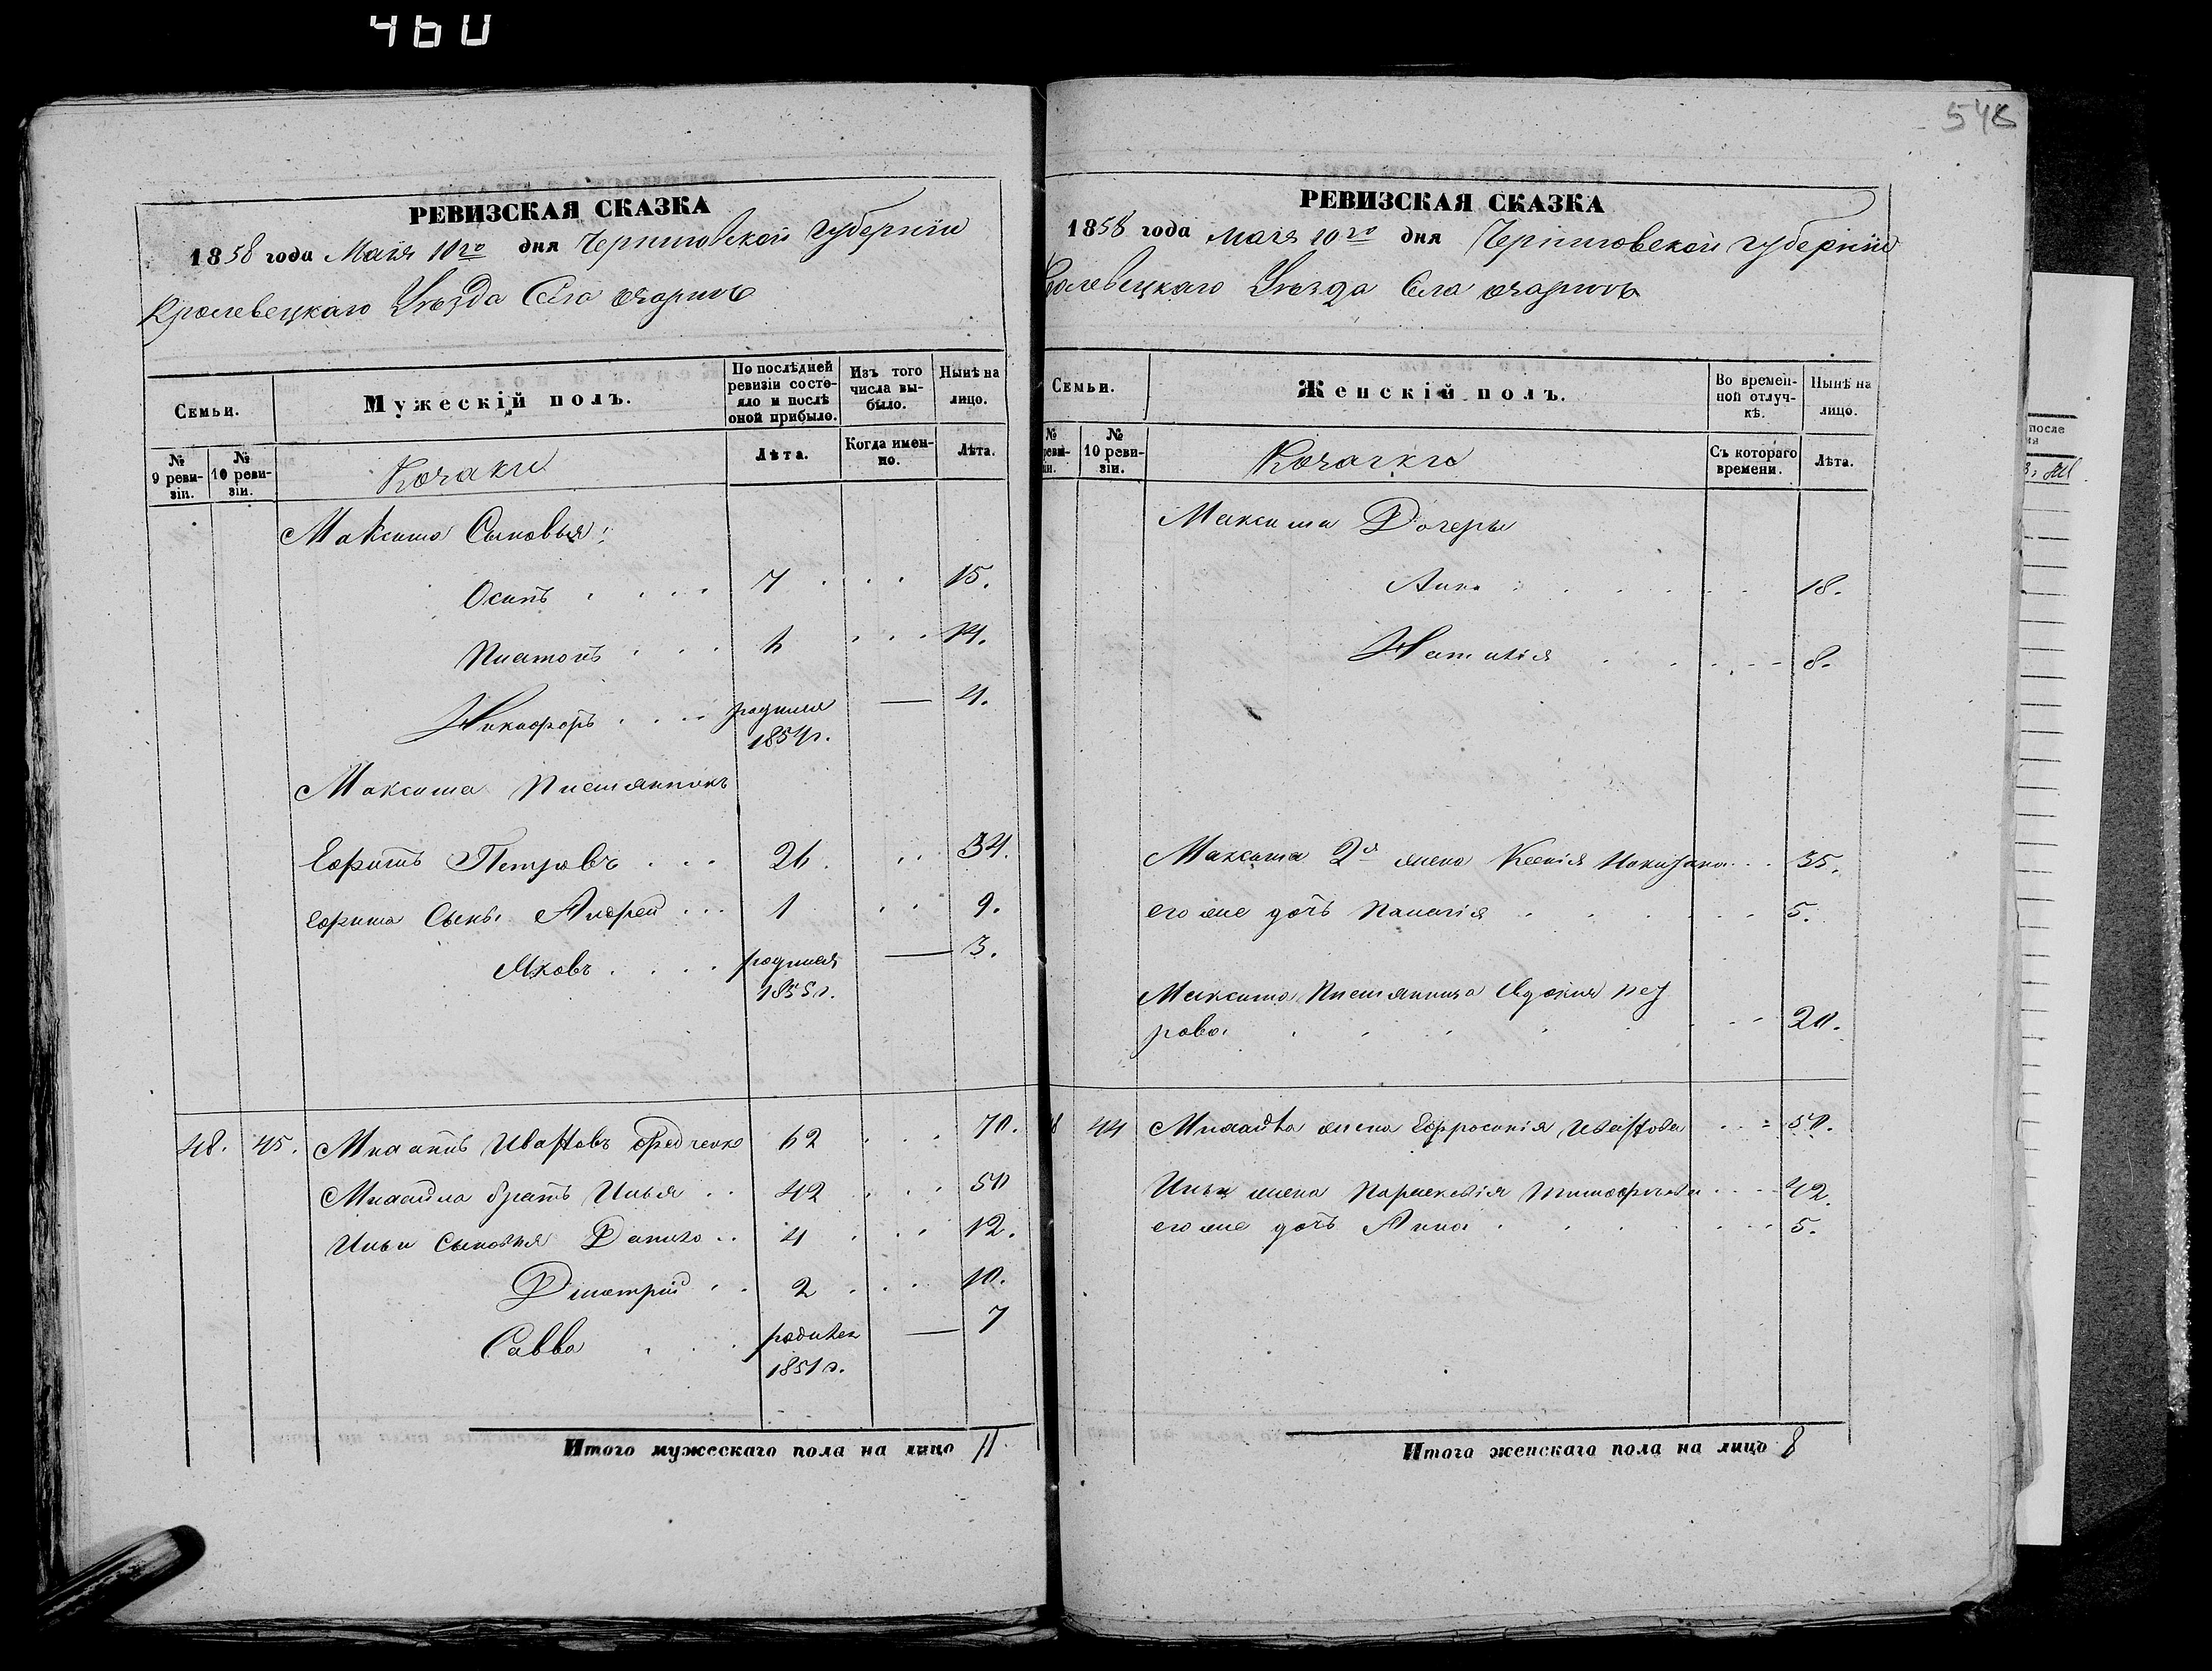 460
548
РЕВИЗСКАЯ СКАЗКА
1858 года Маія 10го дня Черниговской Губерніи
Кролевецкаго Уѣзда Села
Семьи.
Мужескій полъ.
По послѣдней ревизіи состояло и послѣ оной прибыло.
Изъ того числа выбыло.
Нынѣ на лицо.
№ 9 ревизіи.
№ 10 ревизіи.
Козаки
Лѣта.
Когда именно.
Лѣта.
Максима Сыновья:
Осипъ . . . . 7 . . . 15.
Платонъ . . . 6 . . . 14.
Никифоръ . . . родился — 4.
1854г.
Максима Племянникъ
Ефимъ Петровъ . . . 26. . . 34.
Ефима Сынъ: Андрей . . . 1 . . 9.
Яковъ . . . . родился — 3.
1855г.
48. 45. Михаилъ Ивановъ 62 . . . 70.
Михаила братъ Илья . . 42 . . . 50
Ильи сыновья Данило . . 4 . . . 12.
Дмитрій . . 2 . . . 10.
Савва . . . родился — 7
1851г.
Итого мужескаго пола на лицо 11.
РЕВИЗСКАЯ СКАЗКА
1858 года маія 10го дня Черниговской губерніи
Уѣзда Села
Семьи.
Женскій полъ.
Во временной отлучкѣ.
Нынѣ на лицо.
№
№ 10 ревизіи.
Козачки
Съ котораго времени.
Лѣта.
Максима Дочеры
Анна . . . . . . 18.
Наталія . . . . . 8.
Максима 2я жена Ксенія . . . 35.
его же дочь Пелагія . . . . . 5.
Максима Племянница Евдокия Пет
рова . . . . . . 20.
44 Михайла жена Ефросинія . . 50.
Ильи жена Параскевія Тимофѣева . . . 42.
его же дочь Анна . . . . . 5.
Итого женскаго пола на лицо 8